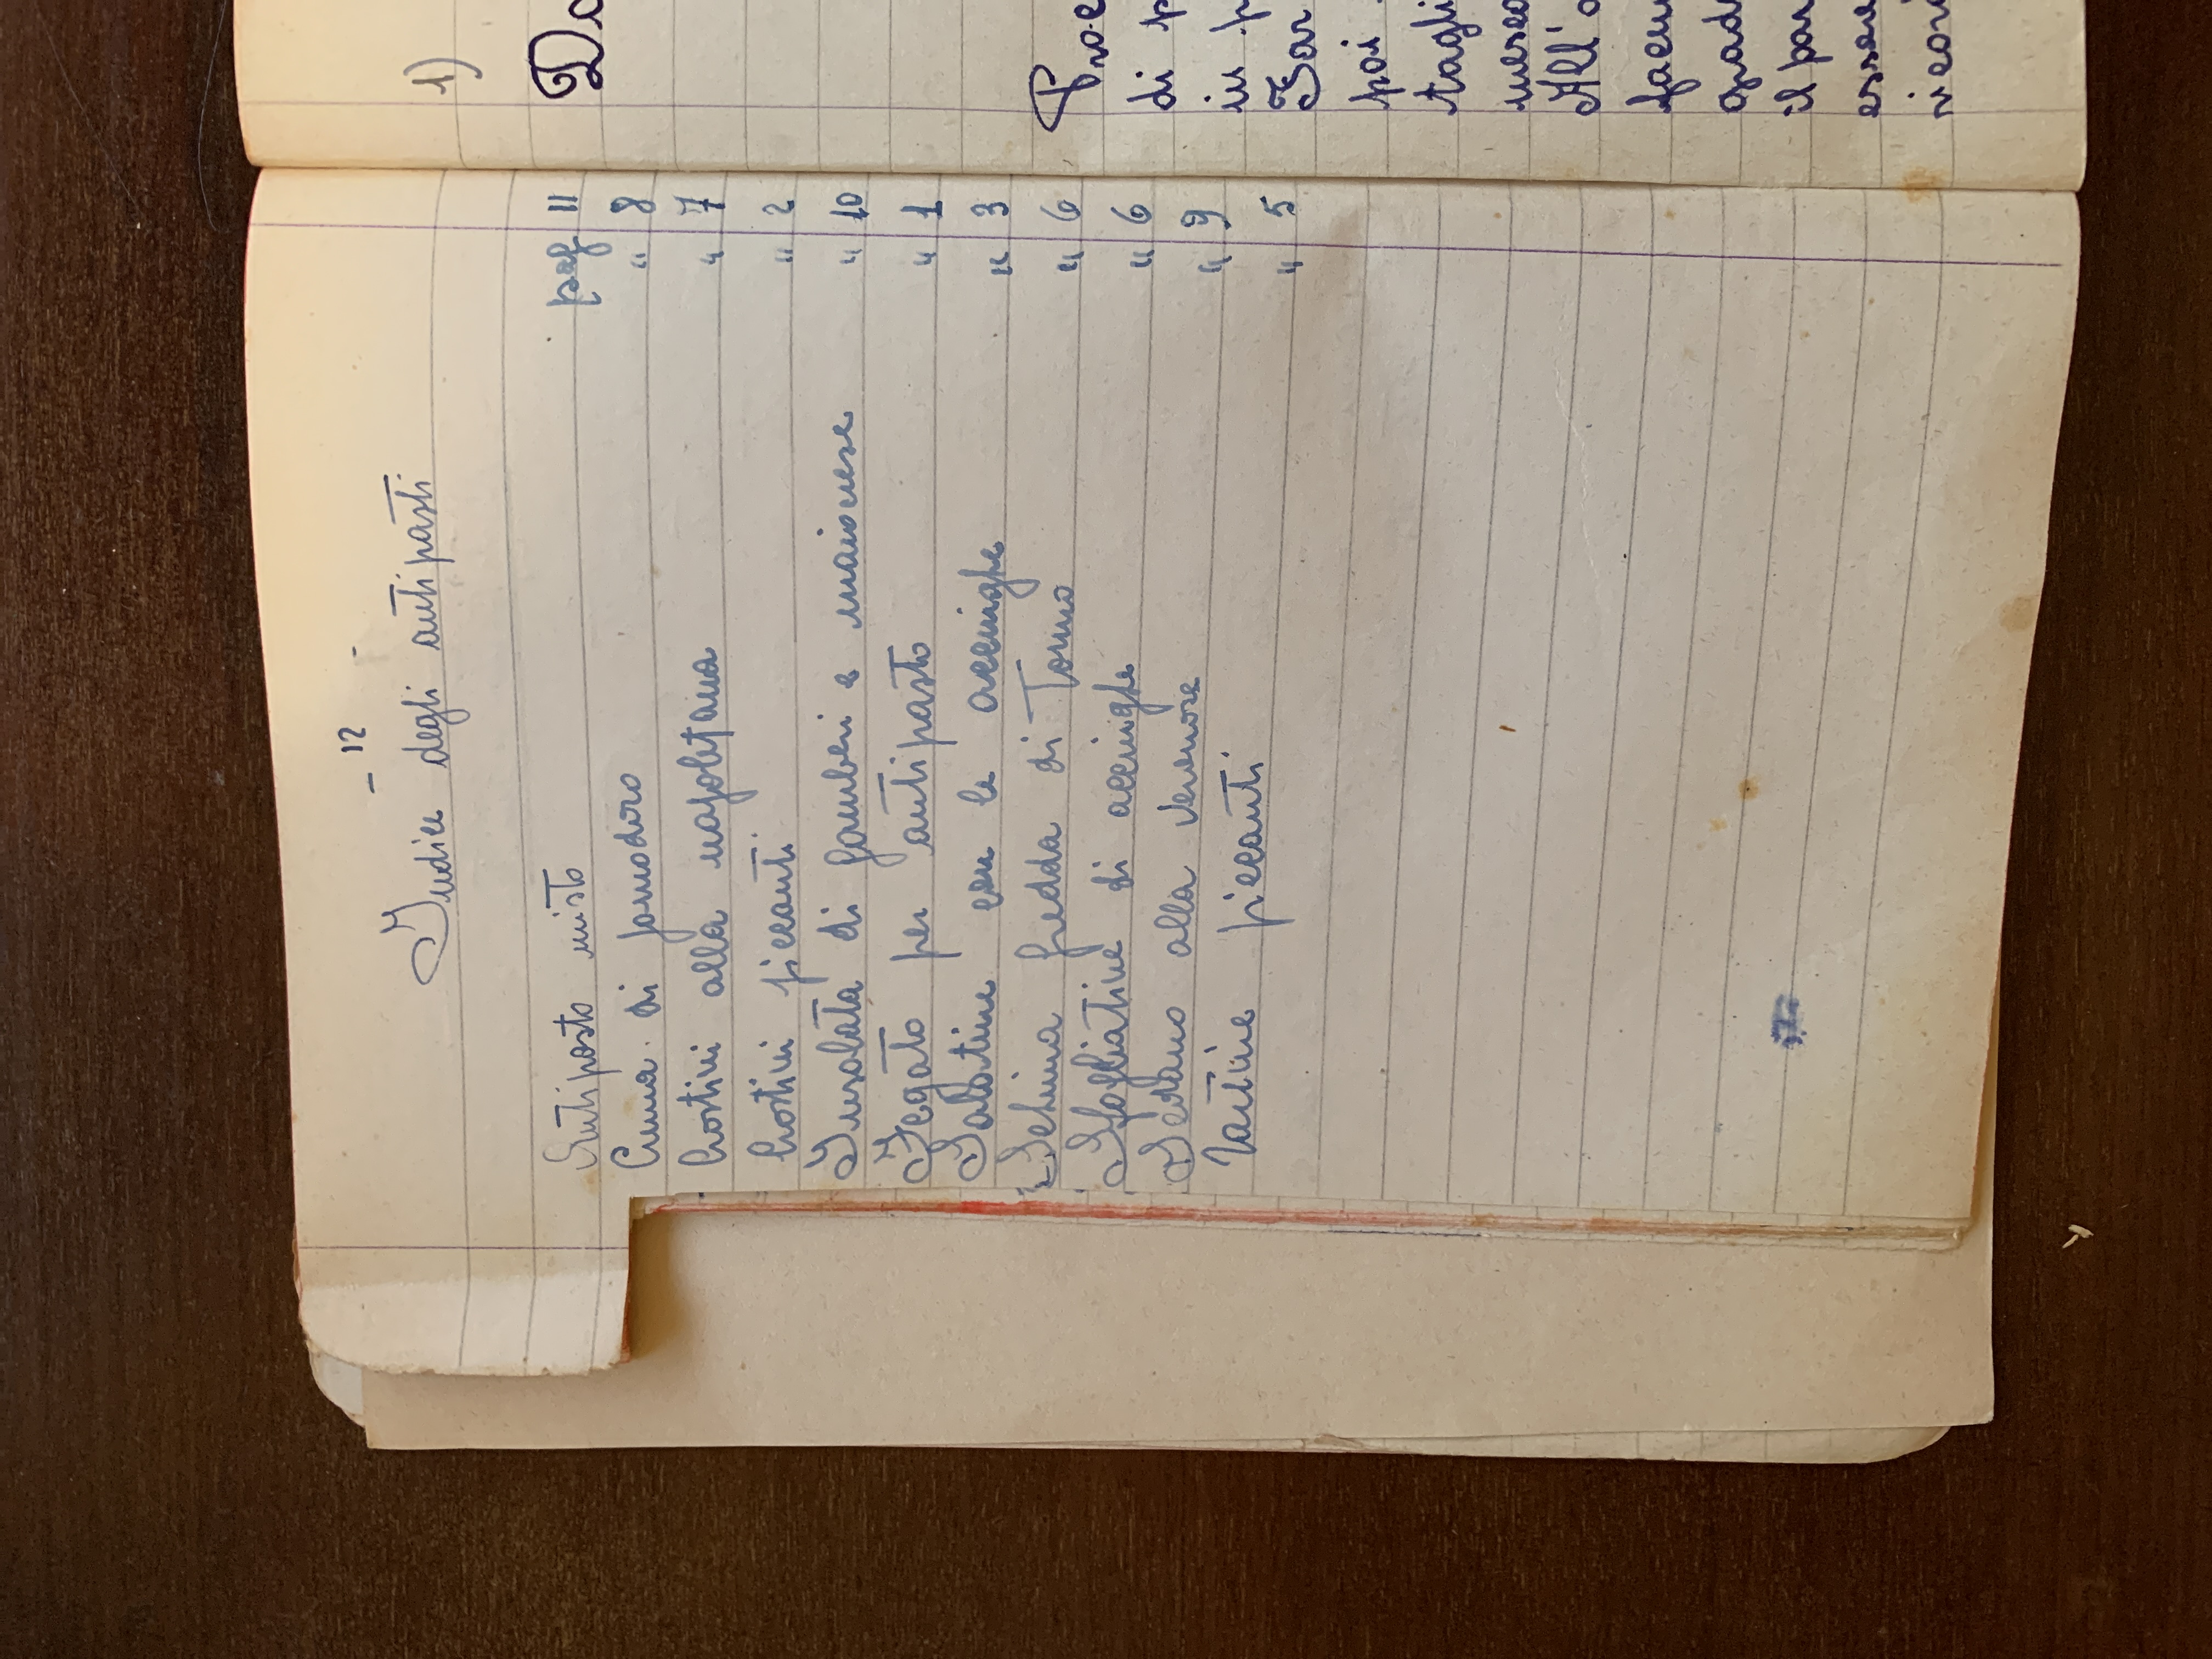 - 12 -
Indice degli antipasti
Antipasto misto pag 11
Crema di pomodoro " 8
Crostini alla napoletana " 7
Crostini piccanti " 2
Insalata di gamberi e maionese " 10
Fegato per antipasto " 1
Salatine con le acciughe " 3
fredda di Tonno " 6
Sfogliatine di acciughe " 6
Sedano alla veronese " 9
Tartine piccanti " 5
1)
Do
Proc
di p
in p
Far
poi
tagli
mesco
All'o
facen
grad
il par
essere
ricor